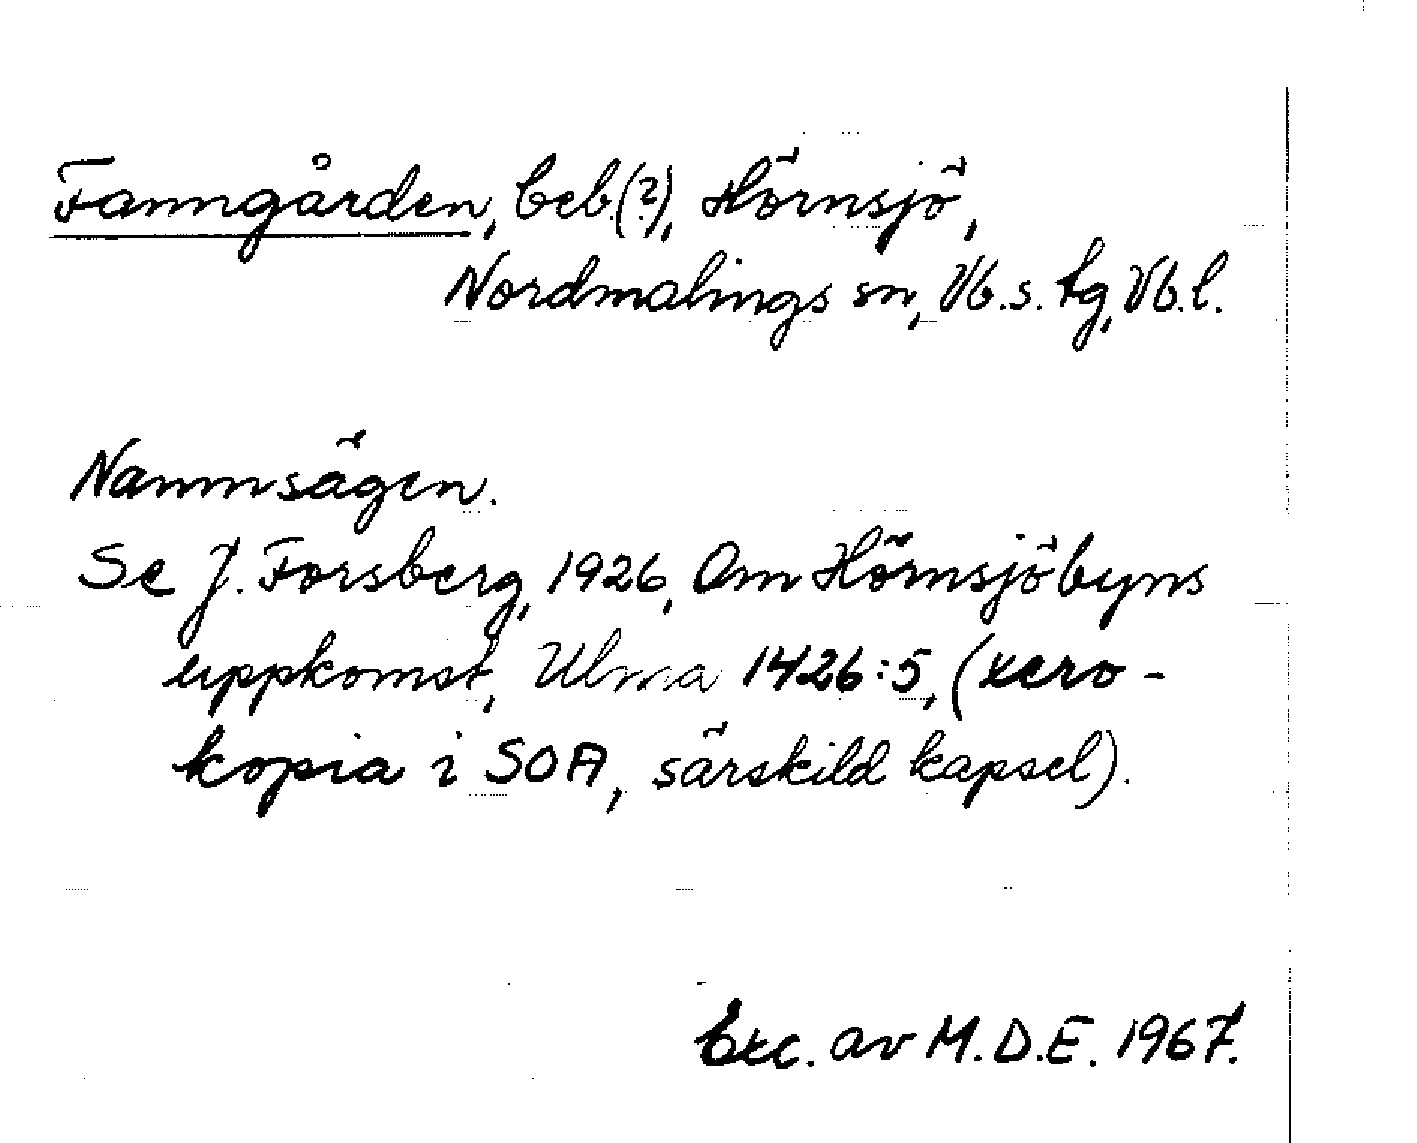 Fanngården, beb.(?), Hörnsjö,
Nordmalings sn, Vb.s. tg, Vb.l.
Namnsägen.
Se J. Forsberg, 1926, Om Hörnsjöbyns
uppkomst, Ulma 1426:5, (xero-
kopia i SOA, särskild kapsel).
Exc. av M.D.E. 1967.